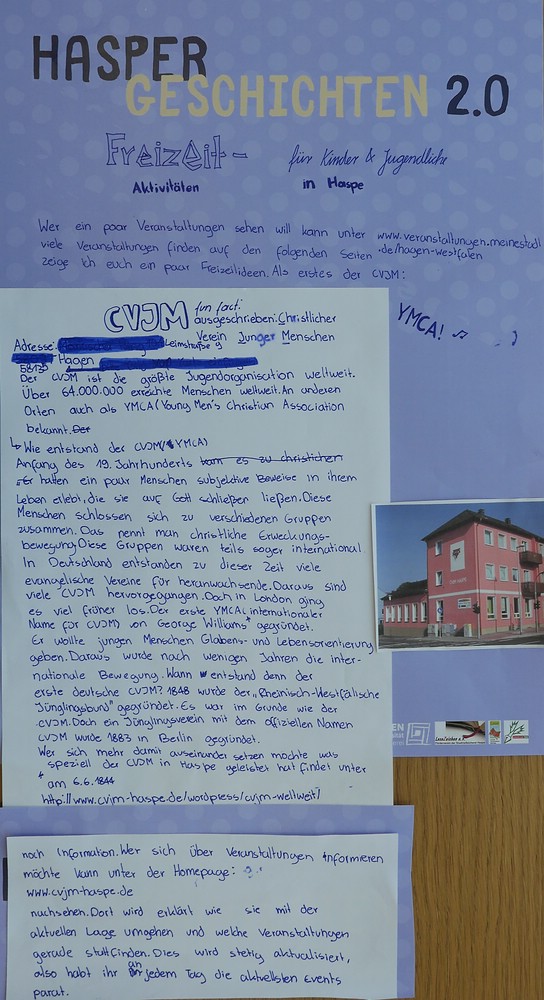 HASPER
GESCHICHTEN 2.0
Freizeit- für Kinder & Jugendliche
Aktivitäten in Haspe
Wer ein paar Veranstaltungen sehen will kann unter www.veranstaltungen.meinestadt
viele Veranstaltungen finden auf den folgenden Seiten .de/hagen-westfalen
zeige Ich euch ein paar Freizeitideen. Als erstes der CVJM:
CVJM fun fact:
ausgeschrieben: Christlicher
Verein Junger Menschen
YMCA! ♫
Adresse: Leimstraße 9
58135 Hagen
Der CVJM ist die größte Jugendorganisation weltweit.
Über 64.000.000 erreichte Menschen weltweit. An anderen
Orten auch als YMCA (Young Men's Christian Association
bekannt. Der
↳ Wie entstand der CVJM/YMCA)
Anfang des 19. Jahrhunderts kam es zu christlichen
hatten ein paar Menschen subjektive Beweise in ihrem
Leben erlebt, die sie auf Gott schließen ließen. Diese
Menschen schlossen sich zu verschiedenen Gruppen
zusammen. Das nennt man christliche Erweckungs-
bewegung. Diese Gruppen waren teils sogar international.
In Deutschland entstanden zu dieser Zeit viele
evangelische Vereine für heranwachsende. Daraus sind
viele CVJM hervorgegangen. Doch in London ging
es viel früher los. Der erste YMCA (internationaler
Name für CVJM) von George Williams* gegründet.
Er wollte jungen Menschen Glabens- und Lebensorientierung
geben. Daraus wurde nach wenigen Jahren die inter-
nationale Bewegung. Wann entstand denn der
erste deutsche CVJM? 1848 wurde der „Rheinisch-Westfälische
Jünglingsbund" gegründet. Es war im Grunde wie der
CVJM. Doch ein Jünglingsverein mit dem offiziellen Namen
CVJM wurde 1883 in Berlin gegründet.
Wer sich mehr damit auseinander setzen möchte was
speziell der CVJM in Haspe geleistet hat findet unter
* am 6.6.1844
http://www.cvjm-haspe.de/wordpress/cvjm-weltweit/
noch Information. Wer sich über Veranstaltungen informieren
möchte kann unter der Homepage:
www.cvjm-haspe.de
nachsehen. Dort wird erklärt wie sie mit der
aktuellen Lage umgehen und welche Veranstaltungen
gerade stattfinden. Dies wird stetig aktualisiert,
also habt ihr an jedem Tag die aktuellsten Events
parat.